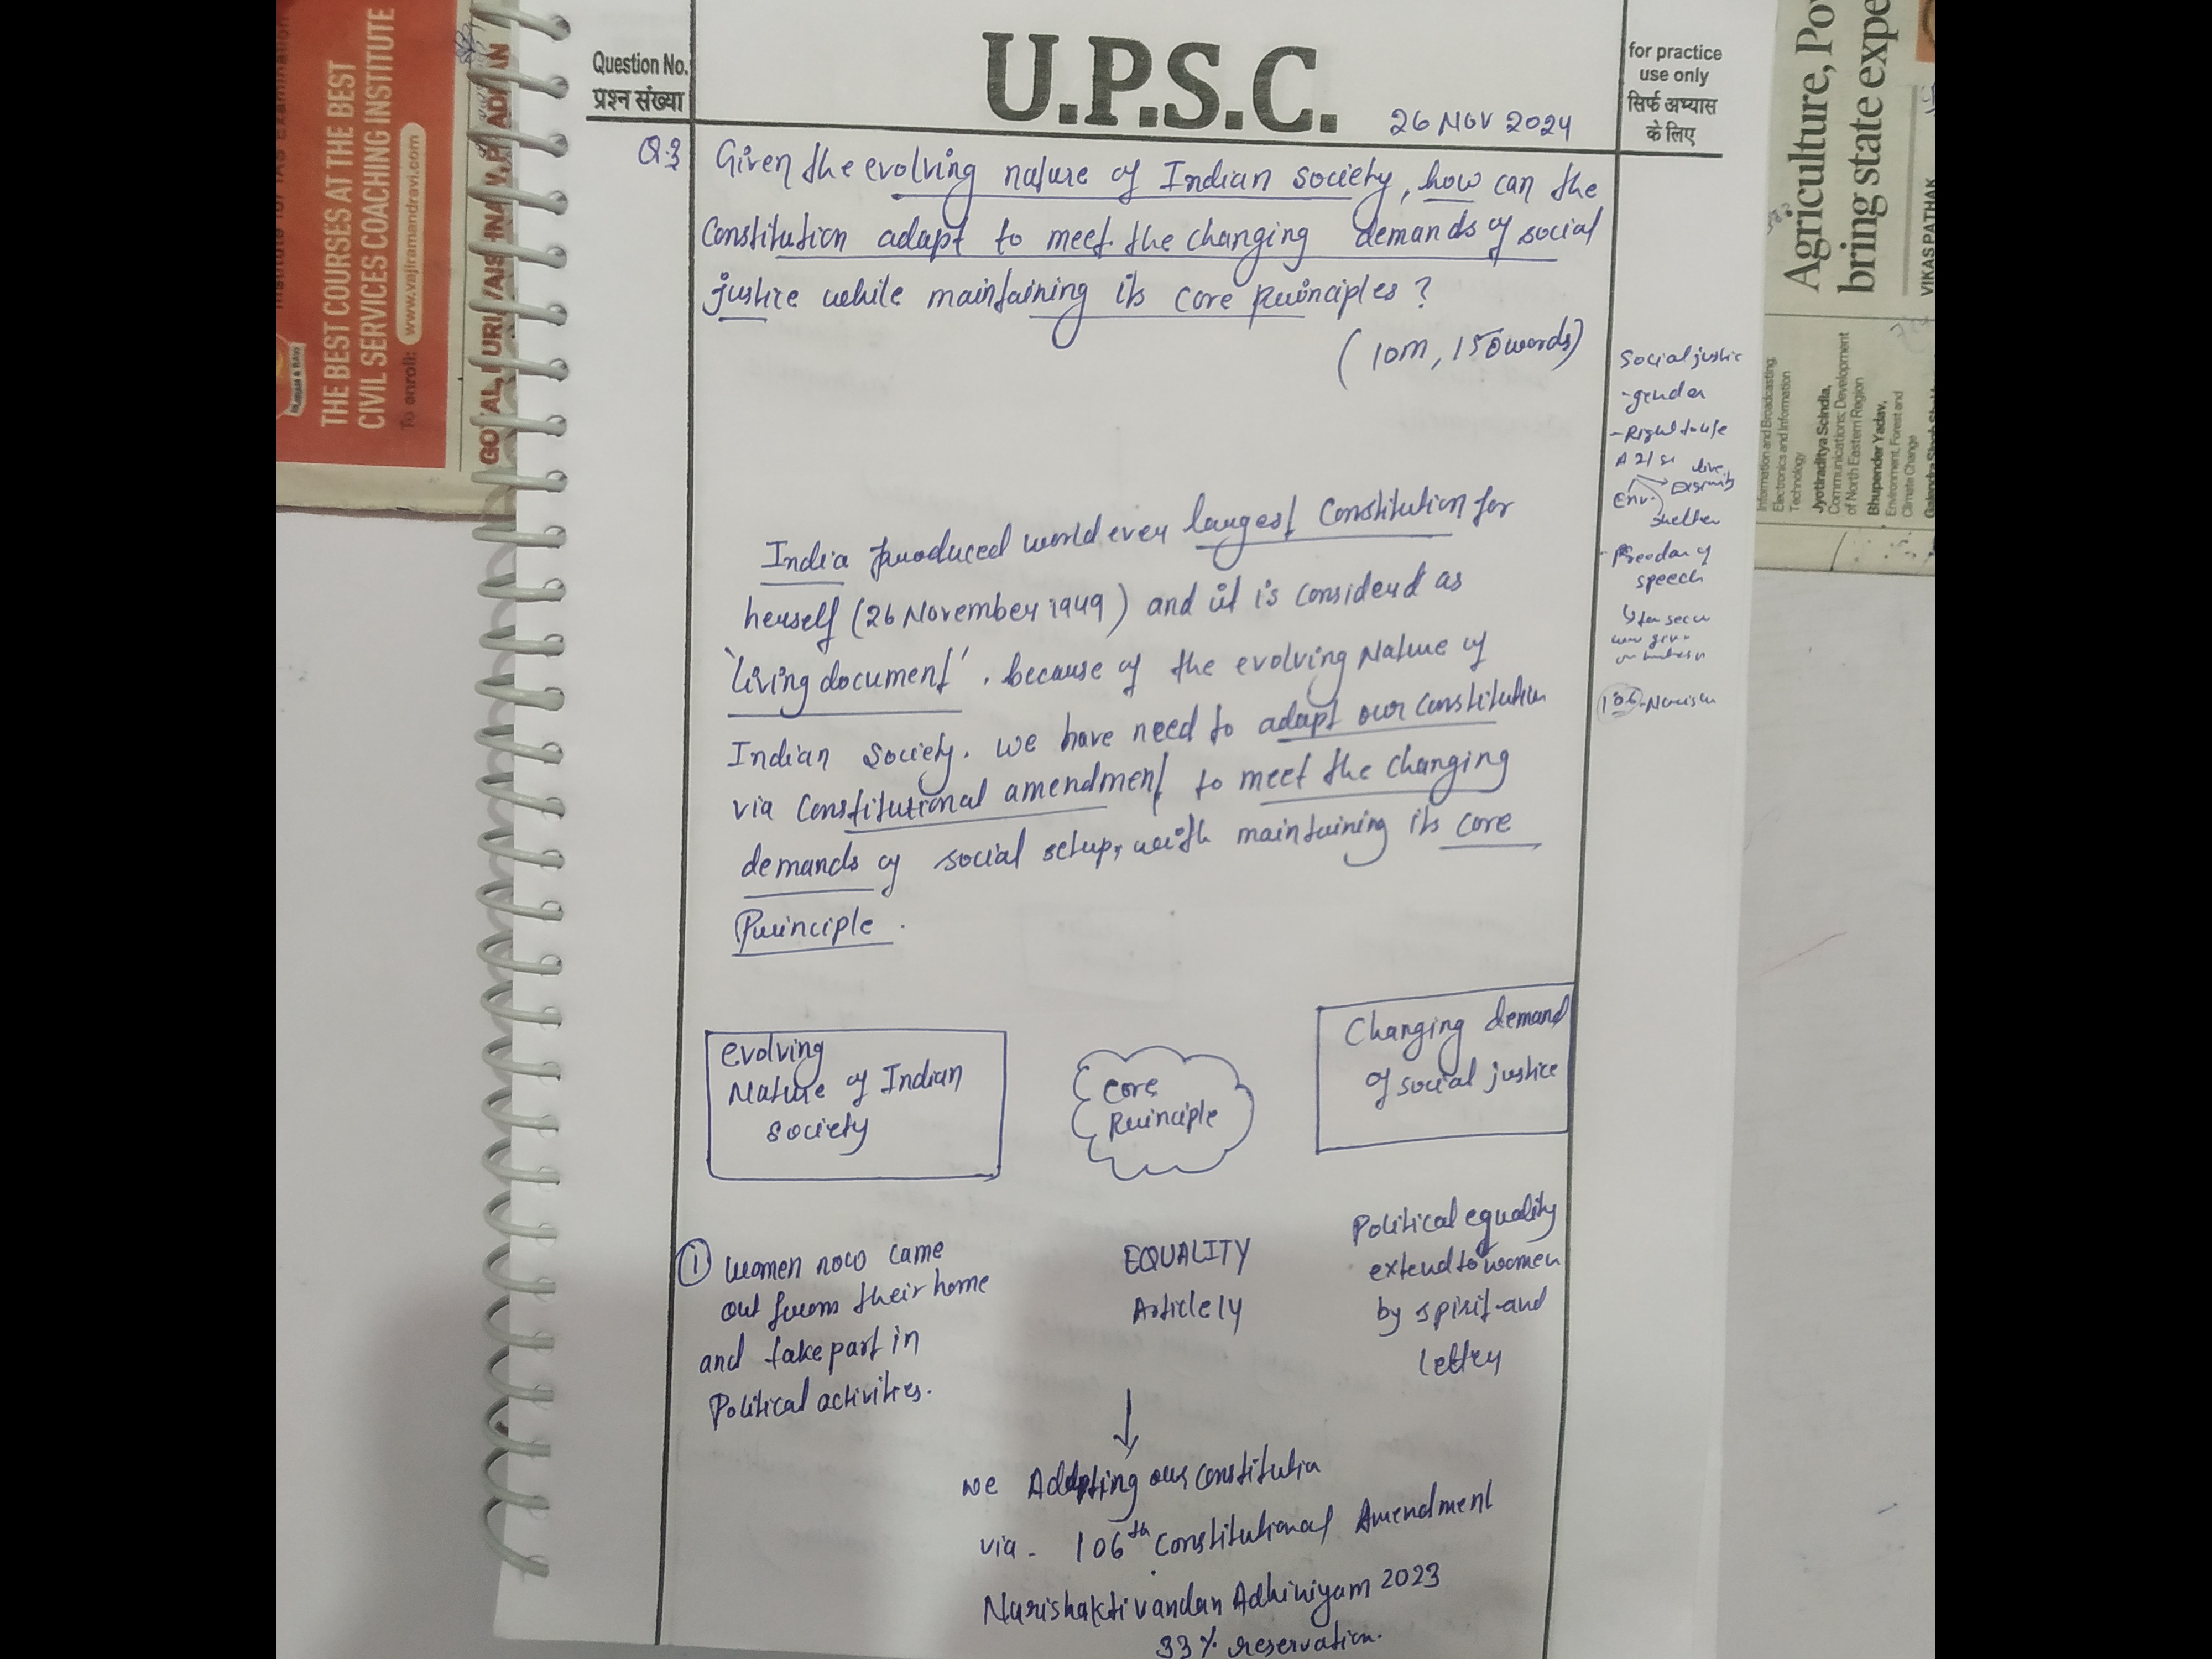 THE BEST COURSES AT THE BEST
CIVIL SERVICES COACHING INSTITUTE
To enroll: www.vajiramandravi.com
Question No.
प्रश्न संख्या
U.P.S.C.
26 NOV 2024
for practice
use only
सिर्फ अभ्यास
के लिए
Q.3 Given the evolving nature of Indian society, how can the
Constitution adapt to meet the changing demands of social
justice while maintaining its core Principles?
(10m, 150words)
India produced world ever largest Constitution for
herself (26 November 1949) and it is considerd as
'living document'. because of the evolving Nature of
Indian Society. we have need to adapt our constitution
via constitutional amendment to meet the changing
demands of social setup, with maintaining its core
Principle.
evolving
Nature of Indian
society
Core
Principle
Changing demand
of social justice
① women now came
out from their home
and take part in
Political activities.
EQUALITY
Article 14
Political equality
extend to women
by spirit and
lettry
we Adapting our constitutia
via - 106th Constitutional Amendment
Narishakti vandan Adhiniyam 2023
33% reservation.
Social justic
- gender
- Right to life
A 21
Env.
shelter
- Freedom of
speech
106
Agriculture, Po
bring state expe
VIKAS PATHAK
Information and Broadcasting;
Electronics and Information
Technology
Jyotiraditya Scindia,
Communications; Development
of North Eastern Region
Bhupender Yadav,
Environment, Forest and
Climate Change